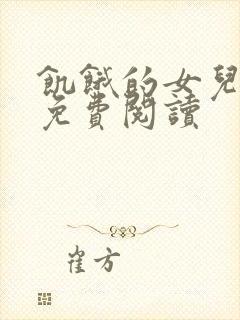 飢餓的女兒
免費閱讀
崔方